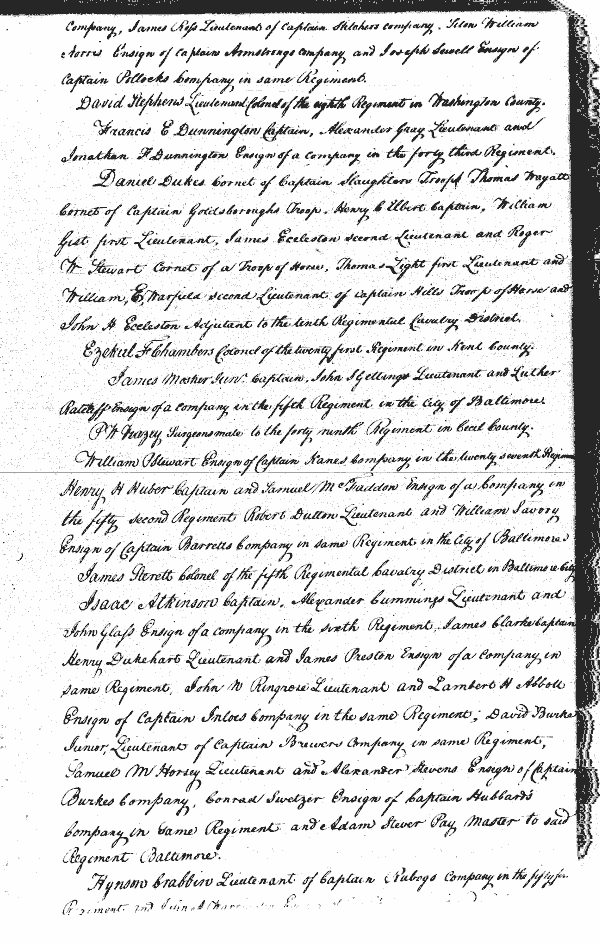 Company, James Ross Lieutenant of Captain Stichers company. William
Norris Ensign of Captain Armstrongs Company and Joseph Sewell Ensign of
Captain Pollocks Company in same Regiment.
David Stephens Lieutenant Colonel of the eighth Regiment in Washington County.
Francis E Dunnington Captain, Alexander Gray Lieutenant and
Jonathan F Dunnington Ensign of a company in the forty third Regiment.
Daniel Dukes Cornet of Captain Slaughters Troop, Thomas Wayatt
Cornet of Captain Goldsboroughs Troop. Henry C Elbert Captain, William
Gist first Lieutenant, James Eccleston second Lieutenant and Roger
W Stewart Cornet of a Troop of Horse, Thomas Light first Lieutenant and
William, E, Warfield second Lieutenant of Captain Hills Troop of Horse and
John H Eccleston Adjutant to the tenth Regimental Cavalry District.
Ezekiel F Chambers Colonel of the twenty first Regiment in Kent County.
James Mosher Junr. Captain, John I Gettings Lieutenant and Luther
Ratcliff Ensign of a company in the fifth Regiment in the City of Baltimore
P W Veazey Surgeons mate to the forty ninth Regiment in Cecil County.
William Stewart Ensign of Captain Kanes Company in the twenty seventh Regim
Henry H Huber Captain and Samuel McFaddon Ensign of a Company in
the fifty second Regiment Robert Dutton Lieutenant and William Savory
Ensign of Captain Barretts Company in same Regiment in the City of Baltimore
James Sterett Colonel of the fifth Regimental Cavalry District in Baltimore City
Isaac Atkinson Captain, Alexander Cummings Lieutenant and
John Glass Ensign of a company in the sixth Regiment, James Clarke Captain
Henry Dukehart Lieutenant and James Preston Ensign of a company in
same Regiment, John W Ringrose Lieutenant and Lambert H Abbott
Ensign of Captain Inloes Company in the same Regiment; David Burke
Junior, Lieutenant of Captain Brewers Company in same Regiment,
Samuel M Horsey Lieutenant and Alexander Stevens Ensign of Captain
Burkes Company, Conrad Swetzer Ensign of Captain Hubbards
Company in same Regiment and Adam Stever Pay Master to said
Regiment Baltimore.
Hynson Crabbin Lieutenant of Captain Rubegs Company in the fifty fir
Regiment and John A